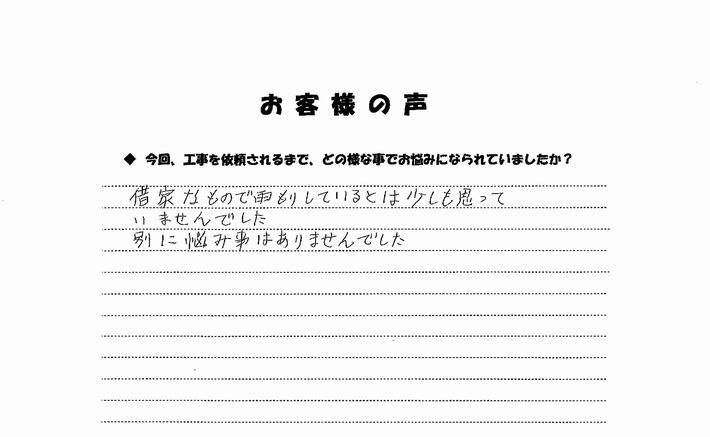 お客様の声
◆ 今回、工事を依頼されるまで、どの様な事でお悩みになられていましたか？
借家なもので雨もりしているとは少しも思って
いませんでした
別に悩み事はありませんでした